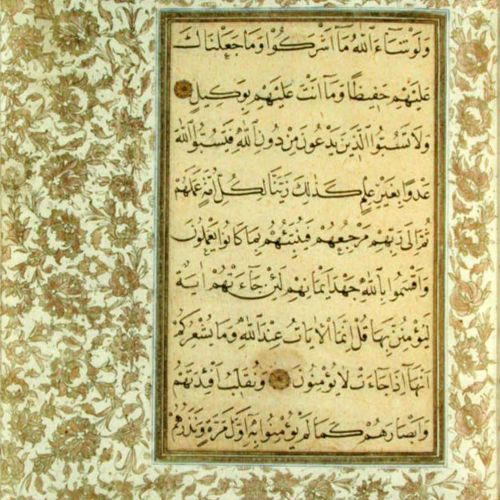 وَلَوْ شَاءَ اللّٰهُ مَا اَشْرَكُوا وَمَا جَعَلْنَاكَ
عَلَيْهِمْ حَفِيظًا وَمَا اَنْتَ عَلَيْهِمْ بِوَكِيلٍ
وَلَا تَسُبُّوا الَّذِينَ يَدْعُونَ مِنْ دُونِ اللّٰهِ فَيَسُبُّوا اللّٰهَ
عَدْوًا بِغَيْرِ عِلْمٍ كَذٰلِكَ زَيَّنَّا لِكُلِّ اُمَّةٍ عَمَلَهُمْ
ثُمَّ اِلٰى رَبِّهِمْ مَرْجِعُهُمْ فَيُنَبِّئُهُمْ بِمَا كَانُوا يَعْمَلُونَ
وَاَقْسَمُوا بِاللّٰهِ جَهْدَ اَيْمَانِهِمْ لَئِنْ جَاءَتْهُمْ اٰيَةٌ
لَيُؤْمِنُنَّ بِهَا قُلْ اِنَّمَا الْاٰيَاتُ عِنْدَ اللّٰهِ وَمَا يُشْعِرُكُمْ
اَنَّهَا اِذَا جَاءَتْ لَا يُؤْمِنُونَ وَنُقَلِّبُ اَفْئِدَتَهُمْ
وَاَبْصَارَهُمْ كَمَا لَمْ يُؤْمِنُوا بِهِ اَوَّلَ مَرَّةٍ وَنَذَرُهُمْ